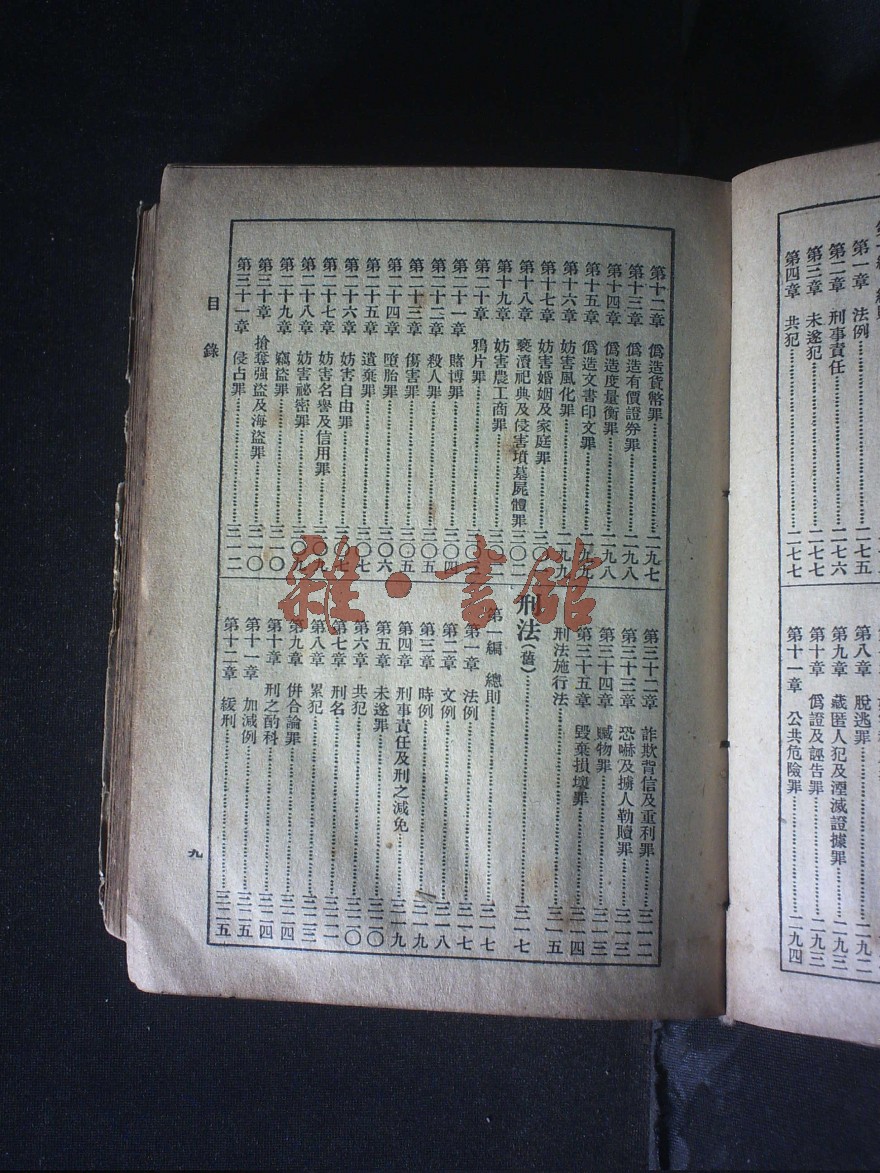 第一章 法例……二七五
第二章 刑事責任……二七六
第三章 未遂犯……二七七
第四章 共犯……二七七
第八章 脫逃罪……二九二
第九章 藏匿人犯及湮滅證據罪……二九三
第十章 僞證及誣告罪……二九三
第十一章 公共危險罪……二九四
第十二章 僞造貨幣罪……二九七
第十三章 僞造有價證券罪……二九八
第十四章 僞造度量衡罪……二九八
第十五章 僞造文書印文罪……二九九
第十六章 妨害風化罪……二九九
第十七章 妨害婚姻及家庭罪……
第十八章 褻瀆祀典及侵害墳墓屍體罪……三〇二
第十九章 妨害農工商罪……
第二十章 鴉片罪……
第二十一章 賭博罪……三〇四
第二十二章 殺人罪……三〇五
第二十三章 傷害罪……三〇五
第二十四章 墮胎罪……三〇六
第二十五章 遺棄罪……三〇七
第二十六章 妨害自由罪……三〇七
第二十七章 妨害名譽及信用罪……三〇九
第二十八章 妨害祕密罪……三〇九
第二十九章 竊盜罪……三一〇
第三十章 搶奪强盜及海盜罪……三一〇
第三十一章 侵占罪……三一二
第三十二章 詐欺背信及重利罪……三一二
第三十三章 恐嚇及擄人勒贖罪……三一三
第三十四章 贓物罪……三一三
第三十五章 毀棄損壞罪……三一四
刑法施行法……三一五
刑法(舊)……三一七
第一編 總則……三一七
第一章 法例……三一七
第二章 文例……三一八
第三章 時例……三一九
第四章 刑事責任及刑之減免……三一九
第五章 未遂罪……三二〇
第六章 共犯……三二〇
第七章 刑名……
第八章 累犯……三二三
第九章 併合論罪……三二四
第十章 刑之酌科……三二四
第十一章 加減例……三二五
第十二章 緩刑……三二五
目錄
九
雜·書館